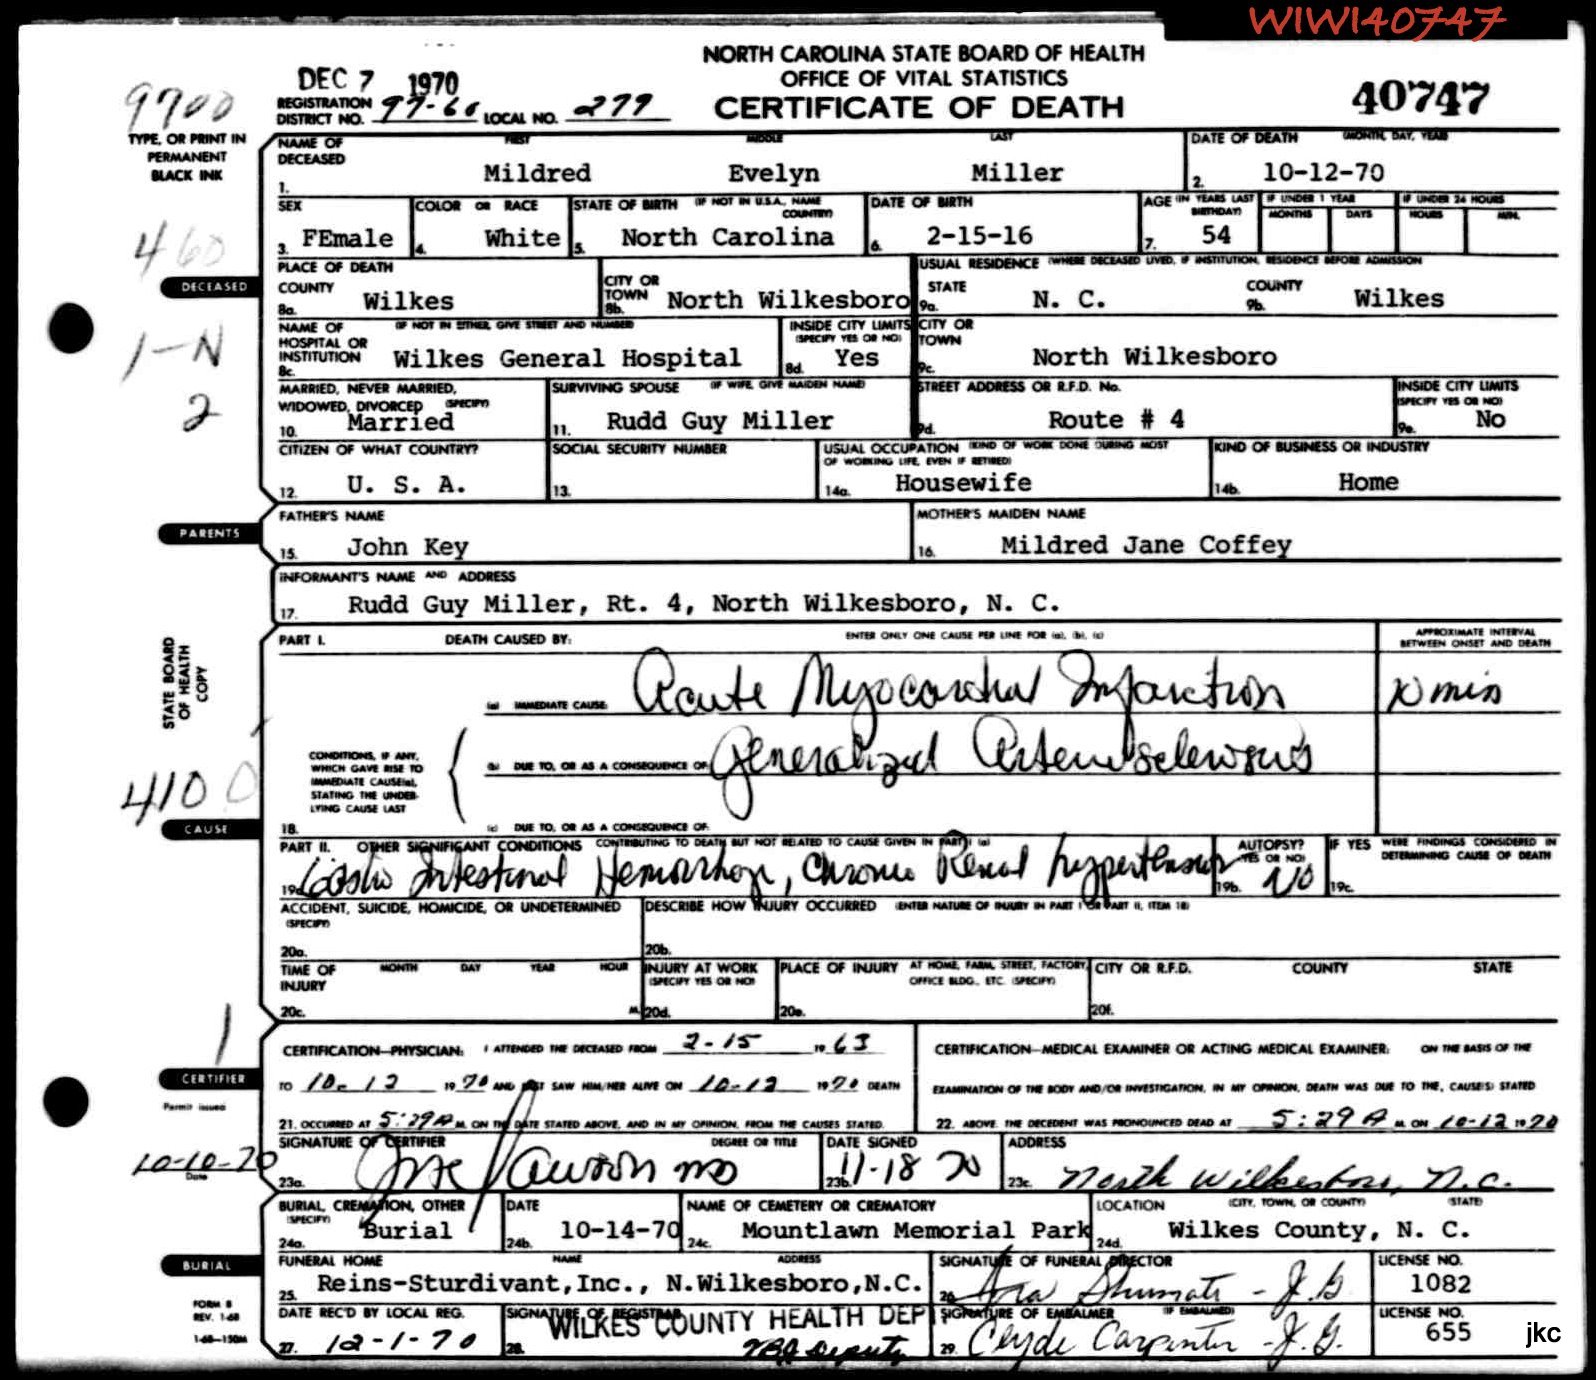 WIWI40747
NORTH CAROLINA STATE BOARD OF HEALTH
OFFICE OF VITAL STATISTICS
CERTIFICATE OF DEATH
40747
DEC 7 1970
REGISTRATION DISTRICT NO. 97-60 LOCAL NO. 277
9700
TYPE, OR PRINT IN
PERMANENT
BLACK INK
NAME OF DECEASED FIRST MIDDLE LAST DATE OF DEATH (MONTH, DAY, YEAR)
1. Mildred Evelyn Miller 2. 10-12-70
SEX COLOR OR RACE STATE OF BIRTH (IF NOT IN U.S.A., NAME COUNTRY) DATE OF BIRTH AGE (IN YEARS LAST BIRTHDAY) IF UNDER 1 YEAR MONTHS DAYS IF UNDER 24 HOURS HOURS MIN.
3. FEmale 4. White 5. North Carolina 6. 2-15-16 7. 54
460
DECEASED
PLACE OF DEATH USUAL RESIDENCE (WHERE DECEASED LIVED, IF INSTITUTION, RESIDENCE BEFORE ADMISSION
COUNTY CITY OR TOWN STATE COUNTY
8a. Wilkes 8b. North Wilkesboro 9a. N. C. 9b. Wilkes
1-N
NAME OF HOSPITAL OR INSTITUTION (IF NOT IN EITHER, GIVE STREET AND NUMBER) INSIDE CITY LIMITS (SPECIFY YES OR NO) CITY OR TOWN
8c. Wilkes General Hospital 8d. Yes 9c. North Wilkesboro
2
MARRIED, NEVER MARRIED, WIDOWED, DIVORCED (SPECIFY) SURVIVING SPOUSE (IF WIFE, GIVE MAIDEN NAME) STREET ADDRESS OR R.F.D. No. INSIDE CITY LIMITS (SPECIFY YES OR NO)
10. Married 11. Rudd Guy Miller 9d. Route # 4 9e. No
CITIZEN OF WHAT COUNTRY? SOCIAL SECURITY NUMBER USUAL OCCUPATION (KIND OF WORK DONE DURING MOST OF WORKING LIFE, EVEN IF RETIRED) KIND OF BUSINESS OR INDUSTRY
12. U. S. A. 13. 14a. Housewife 14b. Home
PARENTS
FATHER'S NAME MOTHER'S MAIDEN NAME
15. John Key 16. Mildred Jane Coffey
INFORMANT'S NAME AND ADDRESS
17. Rudd Guy Miller, Rt. 4, North Wilkesboro, N. C.
STATE BOARD
OF HEALTH
COPY
PART I. DEATH CAUSED BY: ENTER ONLY ONE CAUSE PER LINE FOR (a), (b), (c) APPROXIMATE INTERVAL BETWEEN ONSET AND DEATH
(a) IMMEDIATE CAUSE: Acute Myocardial Infarction 10 min
CONDITIONS, IF ANY,
WHICH GAVE RISE TO
IMMEDIATE CAUSE(a),
STATING THE UNDER-
LYING CAUSE LAST
(b) DUE TO, OR AS A CONSEQUENCE OF: Generalized Arteriosclerosis
18. (c) DUE TO, OR AS A CONSEQUENCE OF:
4100
CAUSE
PART II. OTHER SIGNIFICANT CONDITIONS CONTRIBUTING TO DEATH BUT NOT RELATED TO CAUSE GIVEN IN PART I (a) AUTOPSY? YES OR NO) IF YES WERE FINDINGS CONSIDERED IN DETERMINING CAUSE OF DEATH
19a. Gastro Intestinal Hemorrhage, Chronic Renal hypertension 19b. NO 19c.
ACCIDENT, SUICIDE, HOMICIDE, OR UNDETERMINED (SPECIFY) DESCRIBE HOW INJURY OCCURRED (ENTER NATURE OF INJURY IN PART I OR PART II, ITEM 18)
20a. 20b.
TIME OF INJURY MONTH DAY YEAR HOUR INJURY AT WORK (SPECIFY YES OR NO) PLACE OF INJURY AT HOME, FARM, STREET, FACTORY, OFFICE BLDG., ETC. (SPECIFY) CITY OR R.F.D. COUNTY STATE
20c. M. 20d. 20e. 20f.
1
CERTIFIER
Permit issued
10-10-70
Date
CERTIFICATION—PHYSICIAN: I ATTENDED THE DECEASED FROM 2-15 19 63
TO 10-12 19 70 AND LAST SAW HIM/HER ALIVE ON 10-12 19 70 DEATH
21. OCCURRED AT 5:29 A M. ON THE DATE STATED ABOVE, AND IN MY OPINION, FROM THE CAUSES STATED.
CERTIFICATION—MEDICAL EXAMINER OR ACTING MEDICAL EXAMINER: ON THE BASIS OF THE
EXAMINATION OF THE BODY AND/OR INVESTIGATION, IN MY OPINION, DEATH WAS DUE TO THE, CAUSE(S) STATED
22. ABOVE. THE DECEDENT WAS PRONOUNCED DEAD AT 5:29 A M. ON 10-12 19 70
SIGNATURE OF CERTIFIER DEGREE OR TITLE DATE SIGNED ADDRESS
23a. Lawson MD 23b. 11-18 70 23c. North Wilkesboro, N.C.
BURIAL, CREMATION, OTHER (SPECIFY) DATE NAME OF CEMETERY OR CREMATORY LOCATION (CITY, TOWN, OR COUNTY) (STATE)
24a. Burial 24b. 10-14-70 24c. Mountlawn Memorial Park 24d. Wilkes County, N. C.
BURIAL
FUNERAL HOME NAME ADDRESS SIGNATURE OF FUNERAL DIRECTOR LICENSE NO.
25. Reins-Sturdivant,Inc., N.Wilkesboro,N.C. 26. Ira Shumate - J.G. 1082
FORM 8
REV. 1-68
1-68—150M
DATE REC'D BY LOCAL REG. SIGNATURE OF REGISTRAR SIGNATURE OF EMBALMER (IF EMBALMED) LICENSE NO.
27. 12-1-70 28. WILKES COUNTY HEALTH DEPT Deputy 29. Clyde Carpenter - J.G. 655
jkc